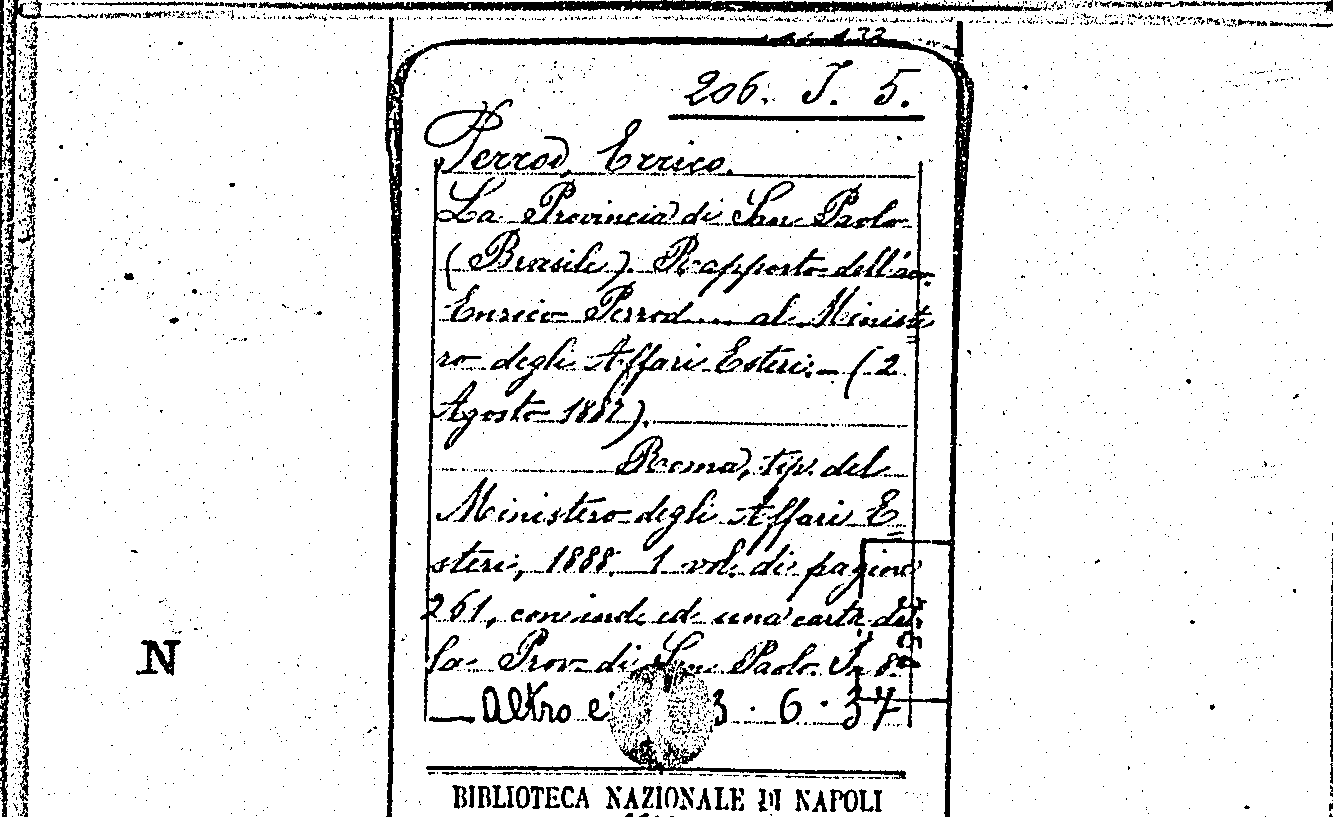 206. J. 5.
Perrod, Errico.
La Provincia di San Paolo
(Brasile). Rapporto dell'avv.
Enrico Perrod... al Ministe
ro degli Affari Esteri. – (2
Agosto 1887).
Roma, tip. del
Ministero degli Affari E
steri, 1888. 1 vol. di pagine
261, con ind. ed una carta del
la Prov. di San Paolo. In 8.°
— Altro 3 . 6 . 37
N
BIBLIOTECA NAZIONALE DI NAPOLI